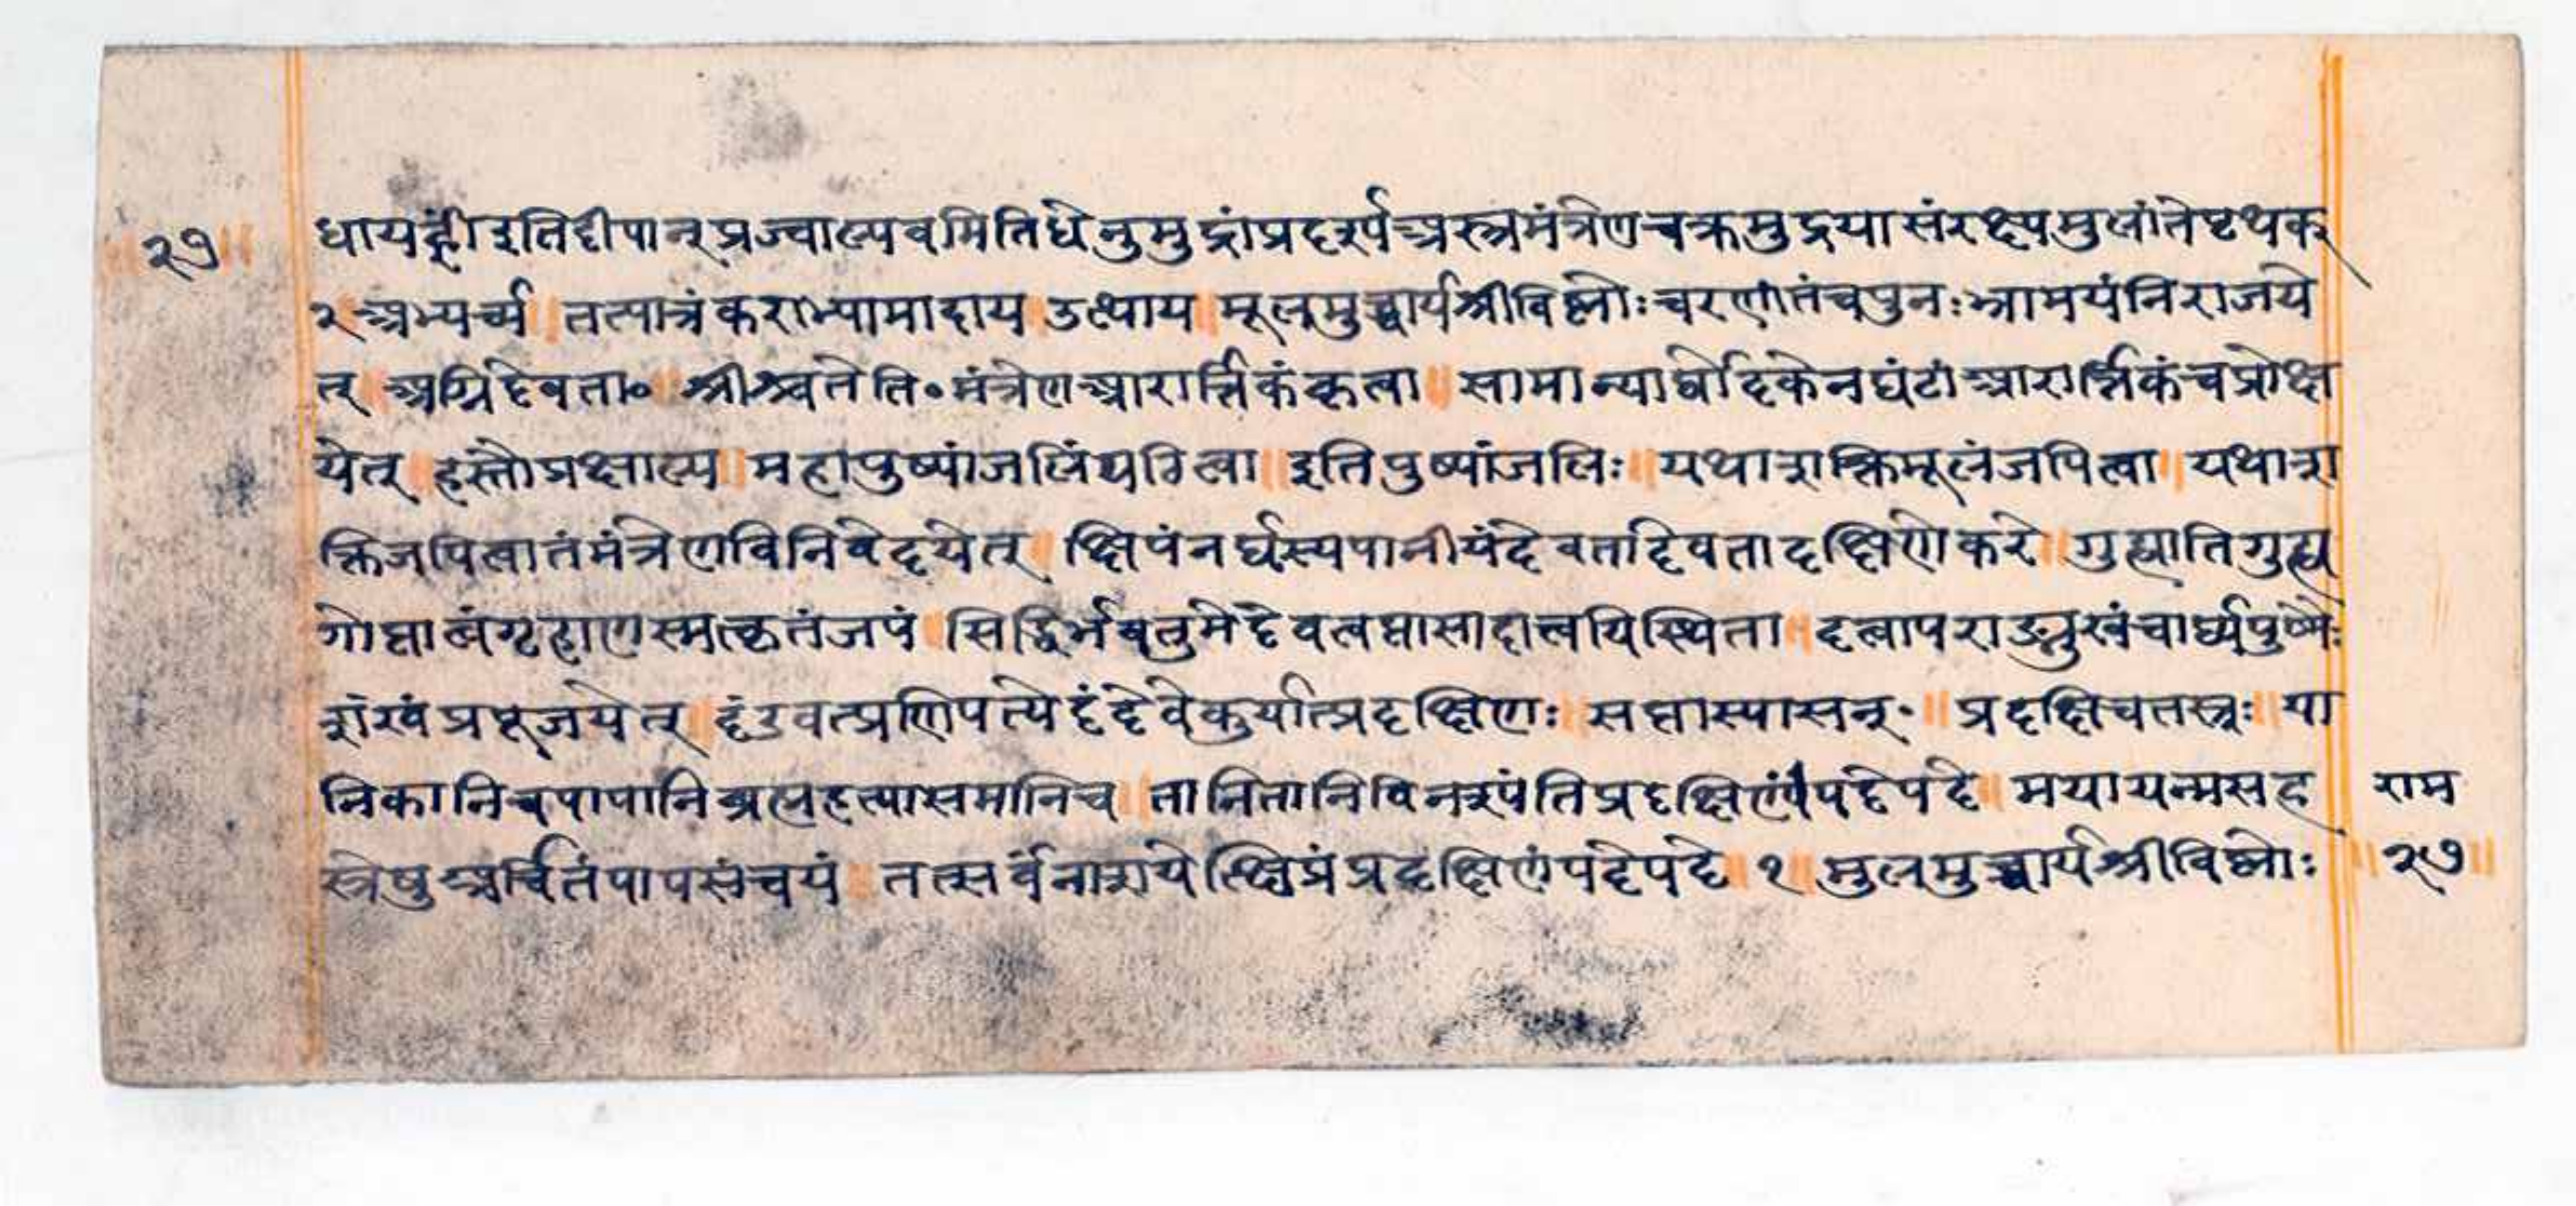 ॥२७॥ धायह्रीं इतिदीपान् प्रज्वाल्यवमितिधेनुमुद्रांप्रदर्श्यअस्त्रमंत्रेणचक्रमुद्रयासंरक्ष्यमुलांतेपृथक्
२ अभ्यर्च्य ॥ तत्पात्रंकराभ्यामादाय उत्थाय ॥ मूलमुच्चार्यश्रीविष्णोःचरणांतंचपुनःभ्रामयंनिराजये
त् ॥ अग्निर्देवता० ॥ श्रीश्र्वतेति०मंत्रेणआरार्त्तिकंकृत्वा ॥ सामान्यार्घोदिकेनघंटांआरार्त्तिकंचप्रोक्ष
येत् ॥ हस्तौप्रक्षाल्य ॥ महापुष्पांजलिं ॥ इतिपुष्पांजलिः ॥ यथाशक्तिमूलंजपित्वा ॥ यथाश
क्तिजपित्वातंमंत्रेणविनिवेदयेत् ॥ क्षिपंनर्घस्यपानीयंदेवतादेवतादक्षिणेकरे ॥ गुह्यातिगुह्य
गोप्तात्वंगृहाणस्मत्कृतंजपं ॥ सिद्धिर्भवतुमेदेवत्वप्तासादात्त्वयिस्थिता ॥ दत्वापराङ्मुखंचार्घ्यपुष्पैः
शंखंप्रपूजयेत् ॥ दंडवत्प्रणिपत्येदंदेवेकुर्यात्प्रदक्षिणः ॥ सप्तास्यासन्॰ ॥ प्रदक्षिचतस्त्रः ॥ या
निकानिचपापानिब्रह्महत्यासमानिच ॥ तानितानिविनश्यंतिप्रदक्षिणंपदेपदे ॥ मयायन्मसह ॥ राम
स्त्रेषुअर्चितंपापसंचयं ॥ तत्सर्वंनाशयेत्क्षिप्रंप्रदक्षिणंपदेपदे ॥ १ ॥ मुलमुच्चार्यश्रीविष्णोः ॥ २७ ॥